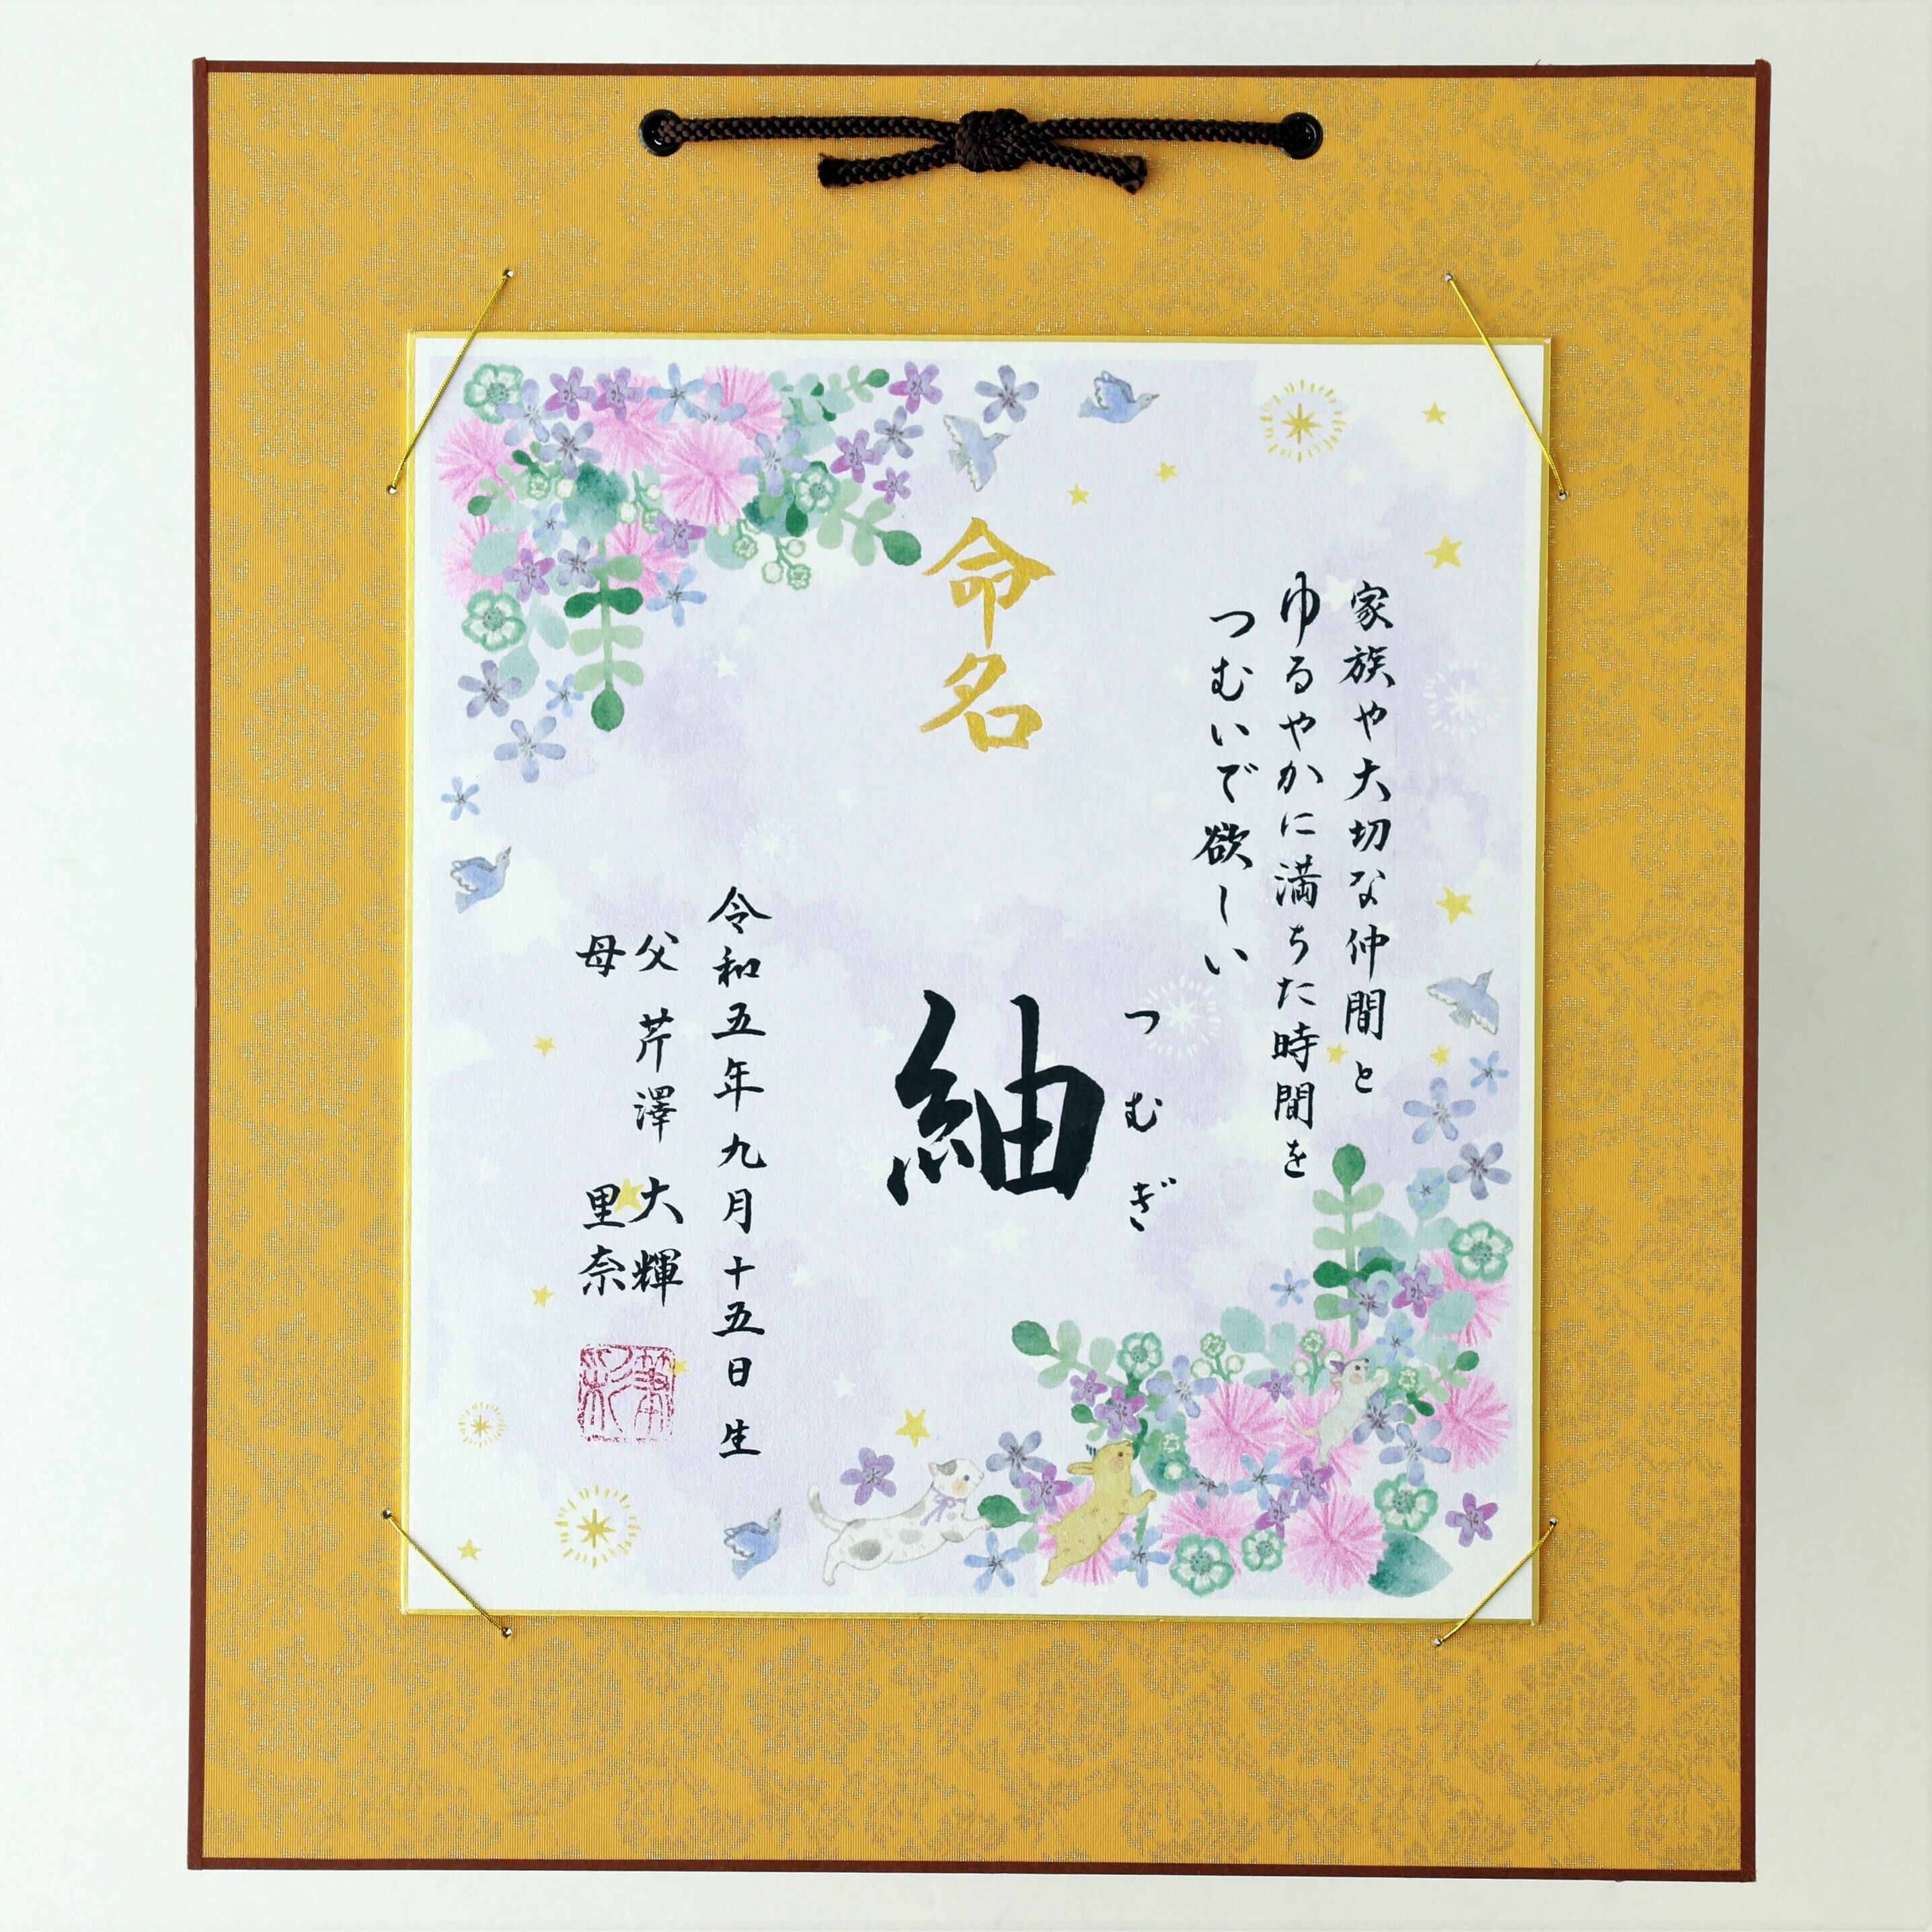 命名
家族や大切な仲間と
ゆるやかに満ちた時間を
つむいで欲しい
つむぎ
紬
令和五年九月十五日生
父 芹澤 大輝
母 里奈